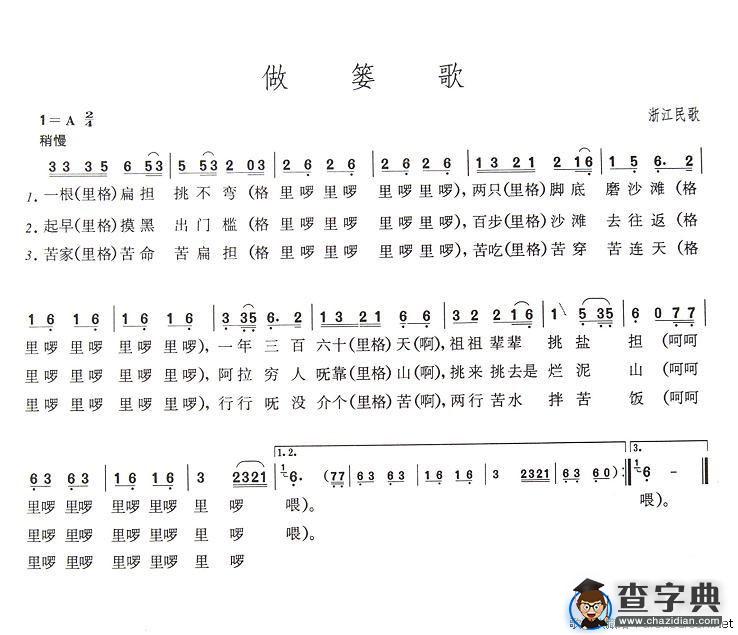 做 篓 歌
1 = A 2/4
浙江民歌
稍慢
33 35 6 53 | 5 53 2 03 | 26 26 | 26 26 | 13 21 2 16 | 1 5 6. 2 |
1. 一根(里格)扁担 挑不弯(格 里啰里啰 里啰里啰),两只(里格)脚底 磨沙滩(格
2. 起早(里格)摸黑 出门槛(格 里啰里啰 里啰里啰),百步(里格)沙滩 去往返(格
3. 苦家(里格)苦命 苦扁担(格 里啰里啰 里啰里啰),苦吃(里格)苦穿 苦连天(格
16 16 | 16 16 | 3 35 6. 2 | 13 21 6 6 | 3 2 2 16 | 1 5 35 | 6 0 77 |
里啰 里啰 里啰 里啰),一年三百 六十(里格)天(啊),祖祖辈辈 挑盐 担 (呵呵
里啰 里啰 里啰 里啰),阿拉穷人 呒靠(里格)山(啊),挑来挑去是 烂泥 山 (呵呵
里啰 里啰 里啰 里啰),行行呒没 介个(里格)苦(啊),两行苦水 拌苦 饭 (呵呵
63 63 | 16 16 | 3 2321 | 1.2. 1 6. (77 | 63 63 | 16 16 | 3 2321 | 63 60) :|| 3. 1 6 - ||
里啰 里啰 里啰 里啰 里 啰 喂)。 喂)。
里啰 里啰 里啰 里啰 里 啰 喂)。
里啰 里啰 里啰 里啰 里 啰
查字典
www.chazidian.com